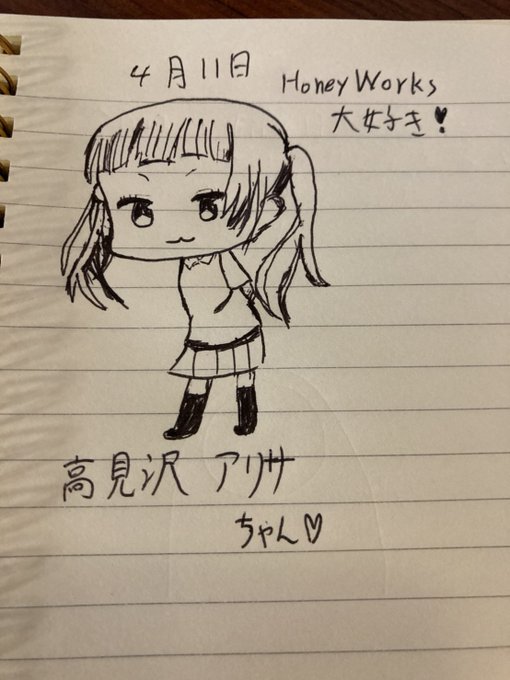 4月11日
HoneyWorks
大好き!
高見沢 アリサ
ちゃん♡